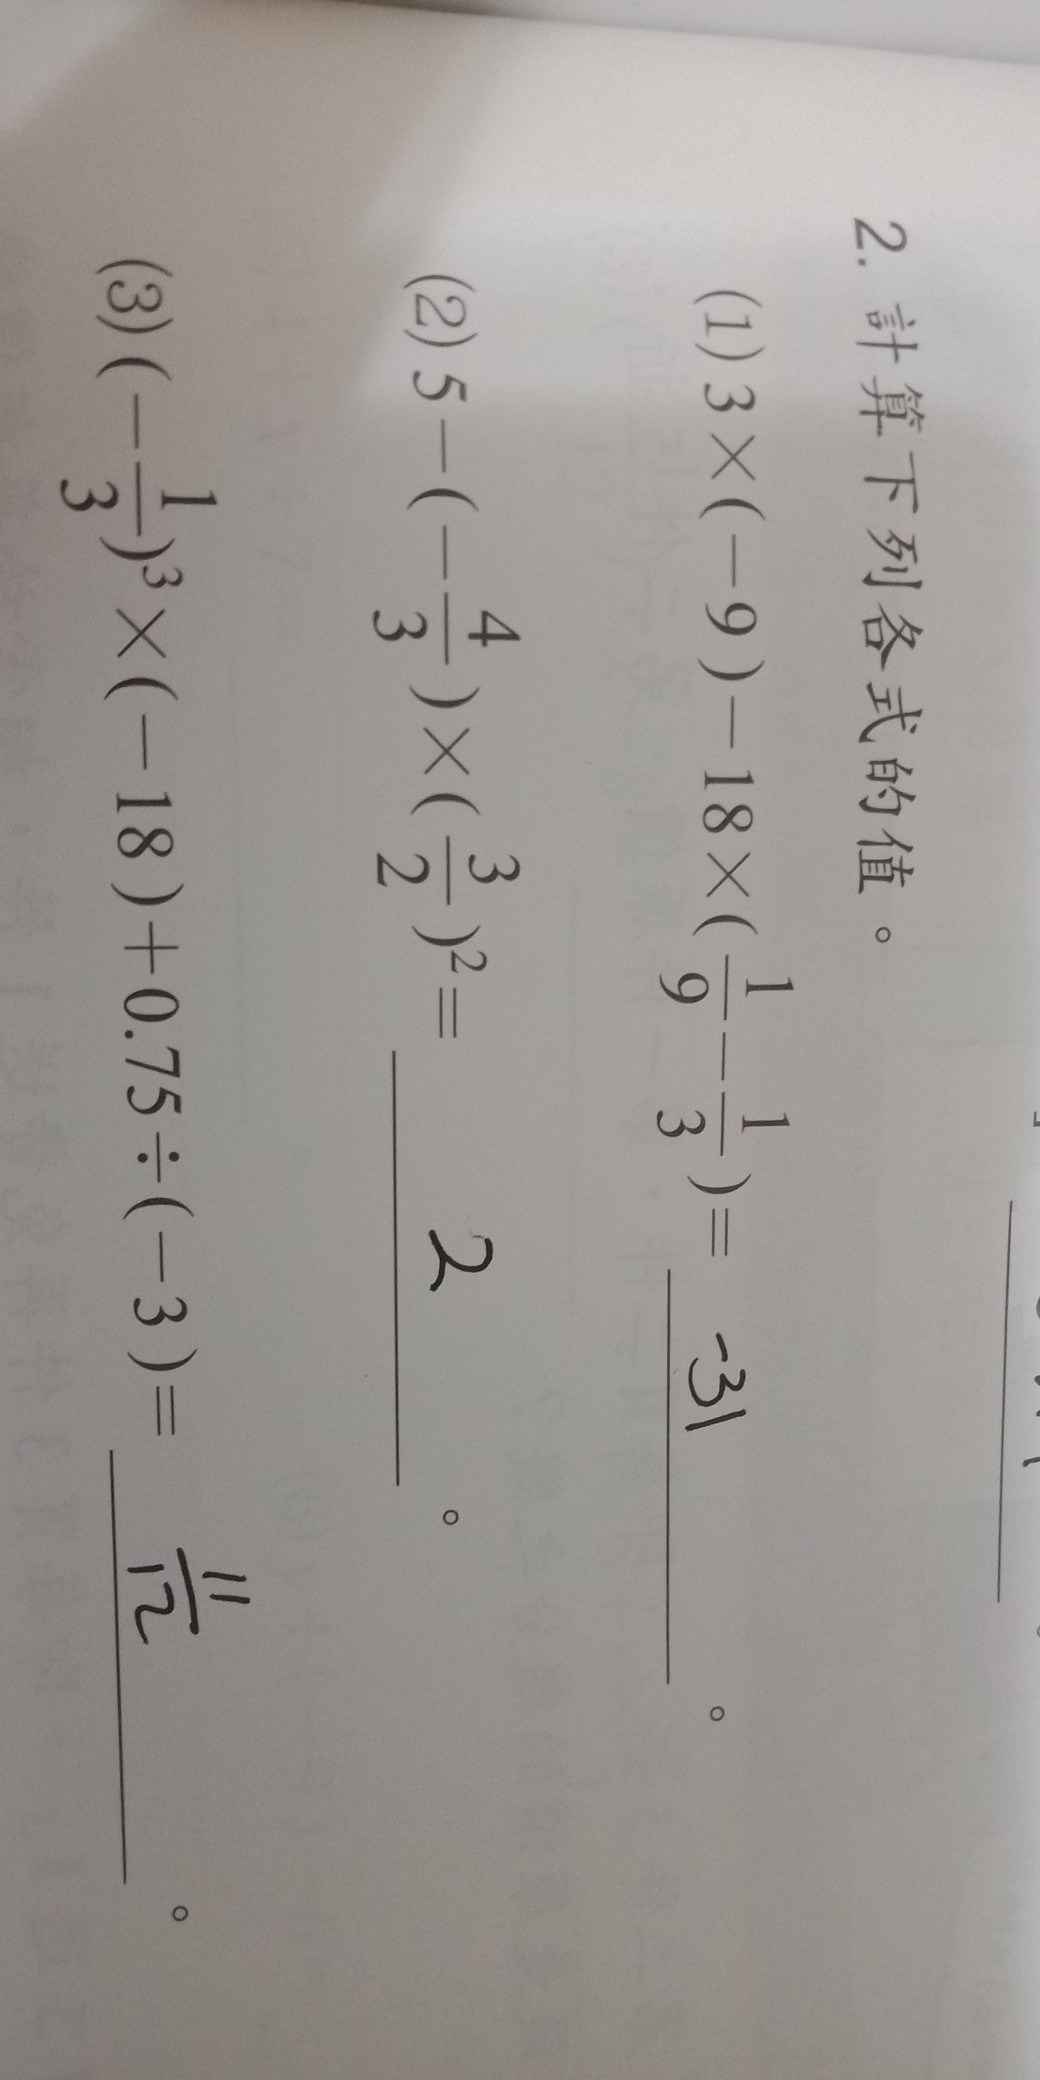 2. 計算下列各式的值。
(1) 3×(-9)-18×(1/9-1/3)= -31 。
(2) 5-(-4/3)×(3/2)²= 2 。
(3) (-1/3)³×(-18)+0.75÷(-3)= 11/12 。